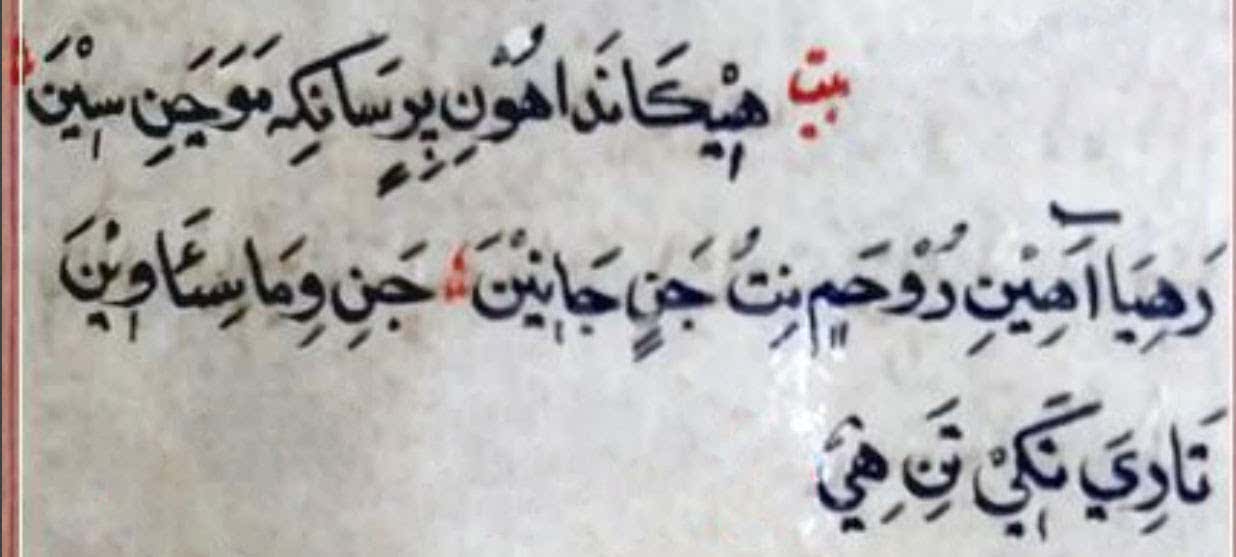 بيت هِيْڪَانَدَا هُوْنِ پِرِسَانڪِہ مَوَجَنِ سِيْنَ
رَهِيَا آهِيْنِ رُوْحَ مٍ نِتُ جَنِ جَانِيْنَ ؞ جَنِ وِمَاسِئَاوِيْنَ
تَارِيَ نَڪِيْ تَنِ هِيْ